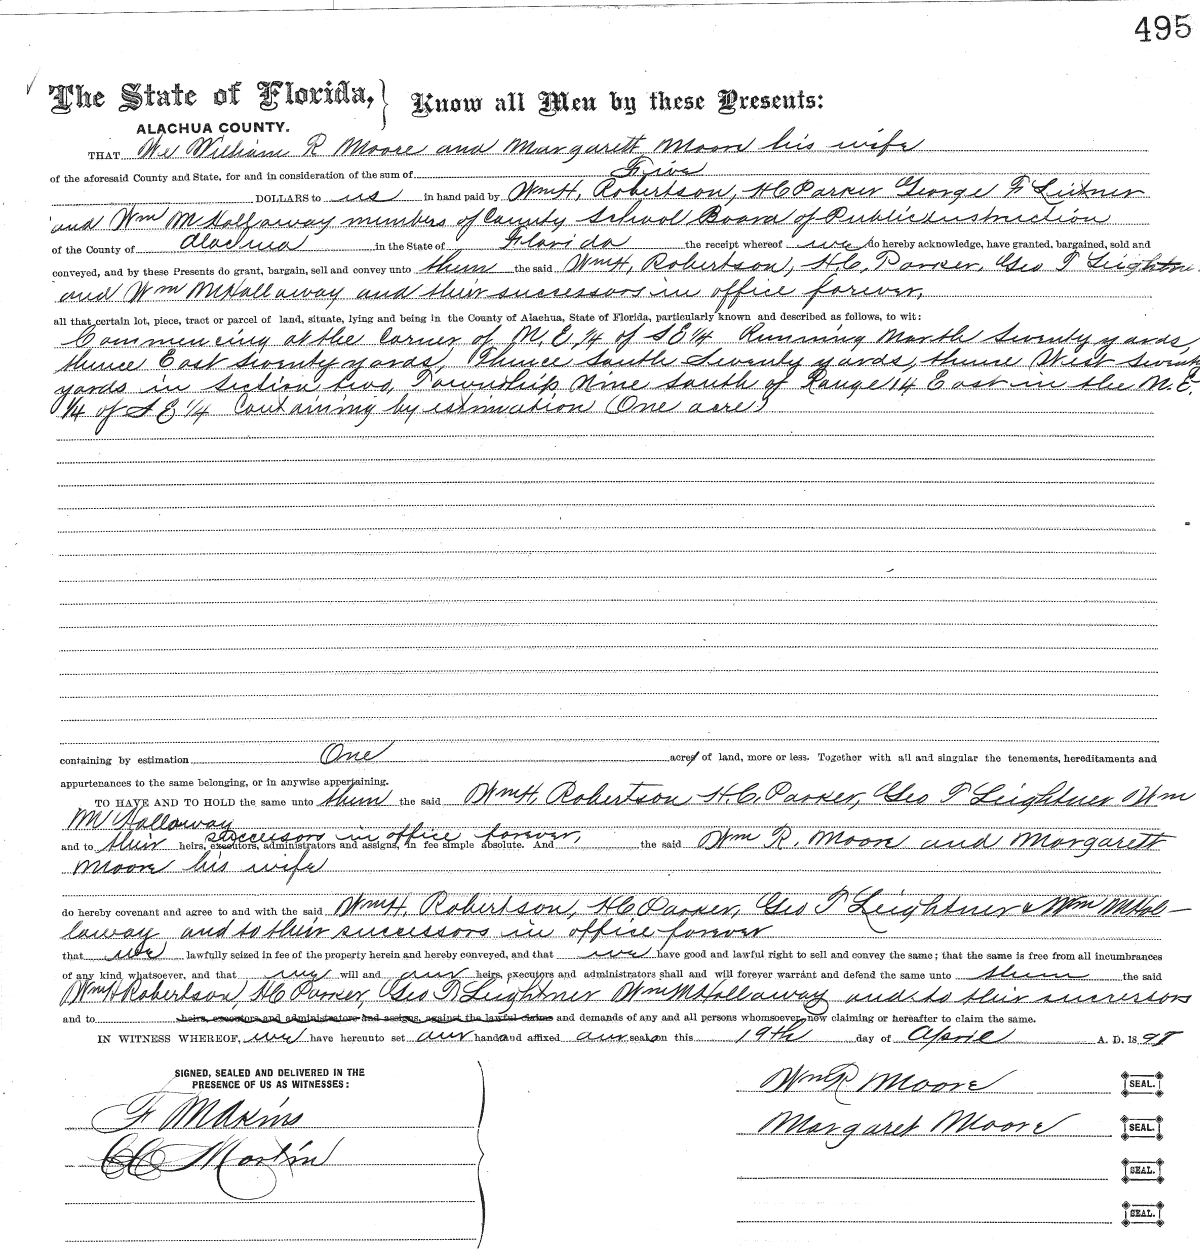 495
The State of Florida, } Know all Men by these Presents:
ALACHUA COUNTY.
THAT We William R Moore and Margarett Moore his wife
of the aforesaid County and State, for and in consideration of the sum of Five
DOLLARS to us in hand paid by Wm H, Robertson, H C Parker George F Leitner
and Wm McHallaway members of County School Board of Public instruction
of the County of Alachua in the State of Florida the receipt whereof we do hereby acknowledge, have granted, bargained, sold and
conveyed, and by these Presents do grant, bargain, sell and convey unto them the said Wm H, Robertson, H. C, Parker, Geo F Leightner
and Wm McHallaway and their successors in office forever,
all that certain lot, piece, tract or parcel of land, situate, lying and being in the County of Alachua, State of Florida, particularly known and described as follows, to wit:
Commencing at the Corner of N. E, 1/4 of S E 1/4 Running North Seventy yards,
thence East Seventy yards, Thence South Seventy yards, thence West Seventy
yards in Section two, Township Nine South of Range 14 East in the N. E.
1/4 of S E 1/4 Containing by estimation (One acre)
containing by estimation One acres of land, more or less. Together with all and singular the tenements, hereditaments and
appurtenances to the same belonging, or in anywise appertaining.
TO HAVE AND TO HOLD the same unto them the said Wm H, Robertson H. C. Parker, Geo F Leightner Wm
McHallaway
successors in office forever,
and to their heirs, executors, administrators and assigns, in fee simple absolute. And the said Wm R. Moore and Margarett
Moore his wife
do hereby covenant and agree to and with the said Wm H, Robertson, H C Parker, Geo F Leightner & Wm McHal-
laway and to their successors in office forever
that we lawfully seized in fee of the property herein and hereby conveyed, and that we have good and lawful right to sell and convey the same; that the same is free from all incumbrances
of any kind whatsoever, and that we will and our heirs, executors and administrators shall and will forever warrant and defend the same unto them the said
Wm H Robertson H C Parker, Geo F Leightner Wm McHallaway and to their successors
and to heirs, executors and administrators and assigns, against the lawful claims and demands of any and all persons whomsoever, now claiming or hereafter to claim the same.
IN WITNESS WHEREOF, we have hereunto set our hand and affixed our seal on this 19th day of April A. D. 1898
SIGNED, SEALED AND DELIVERED IN THE
PRESENCE OF US AS WITNESSES:
Wm R Moore SEAL.
F M Akins
Margaret Moore SEAL.
C C Martin
SEAL.
SEAL.